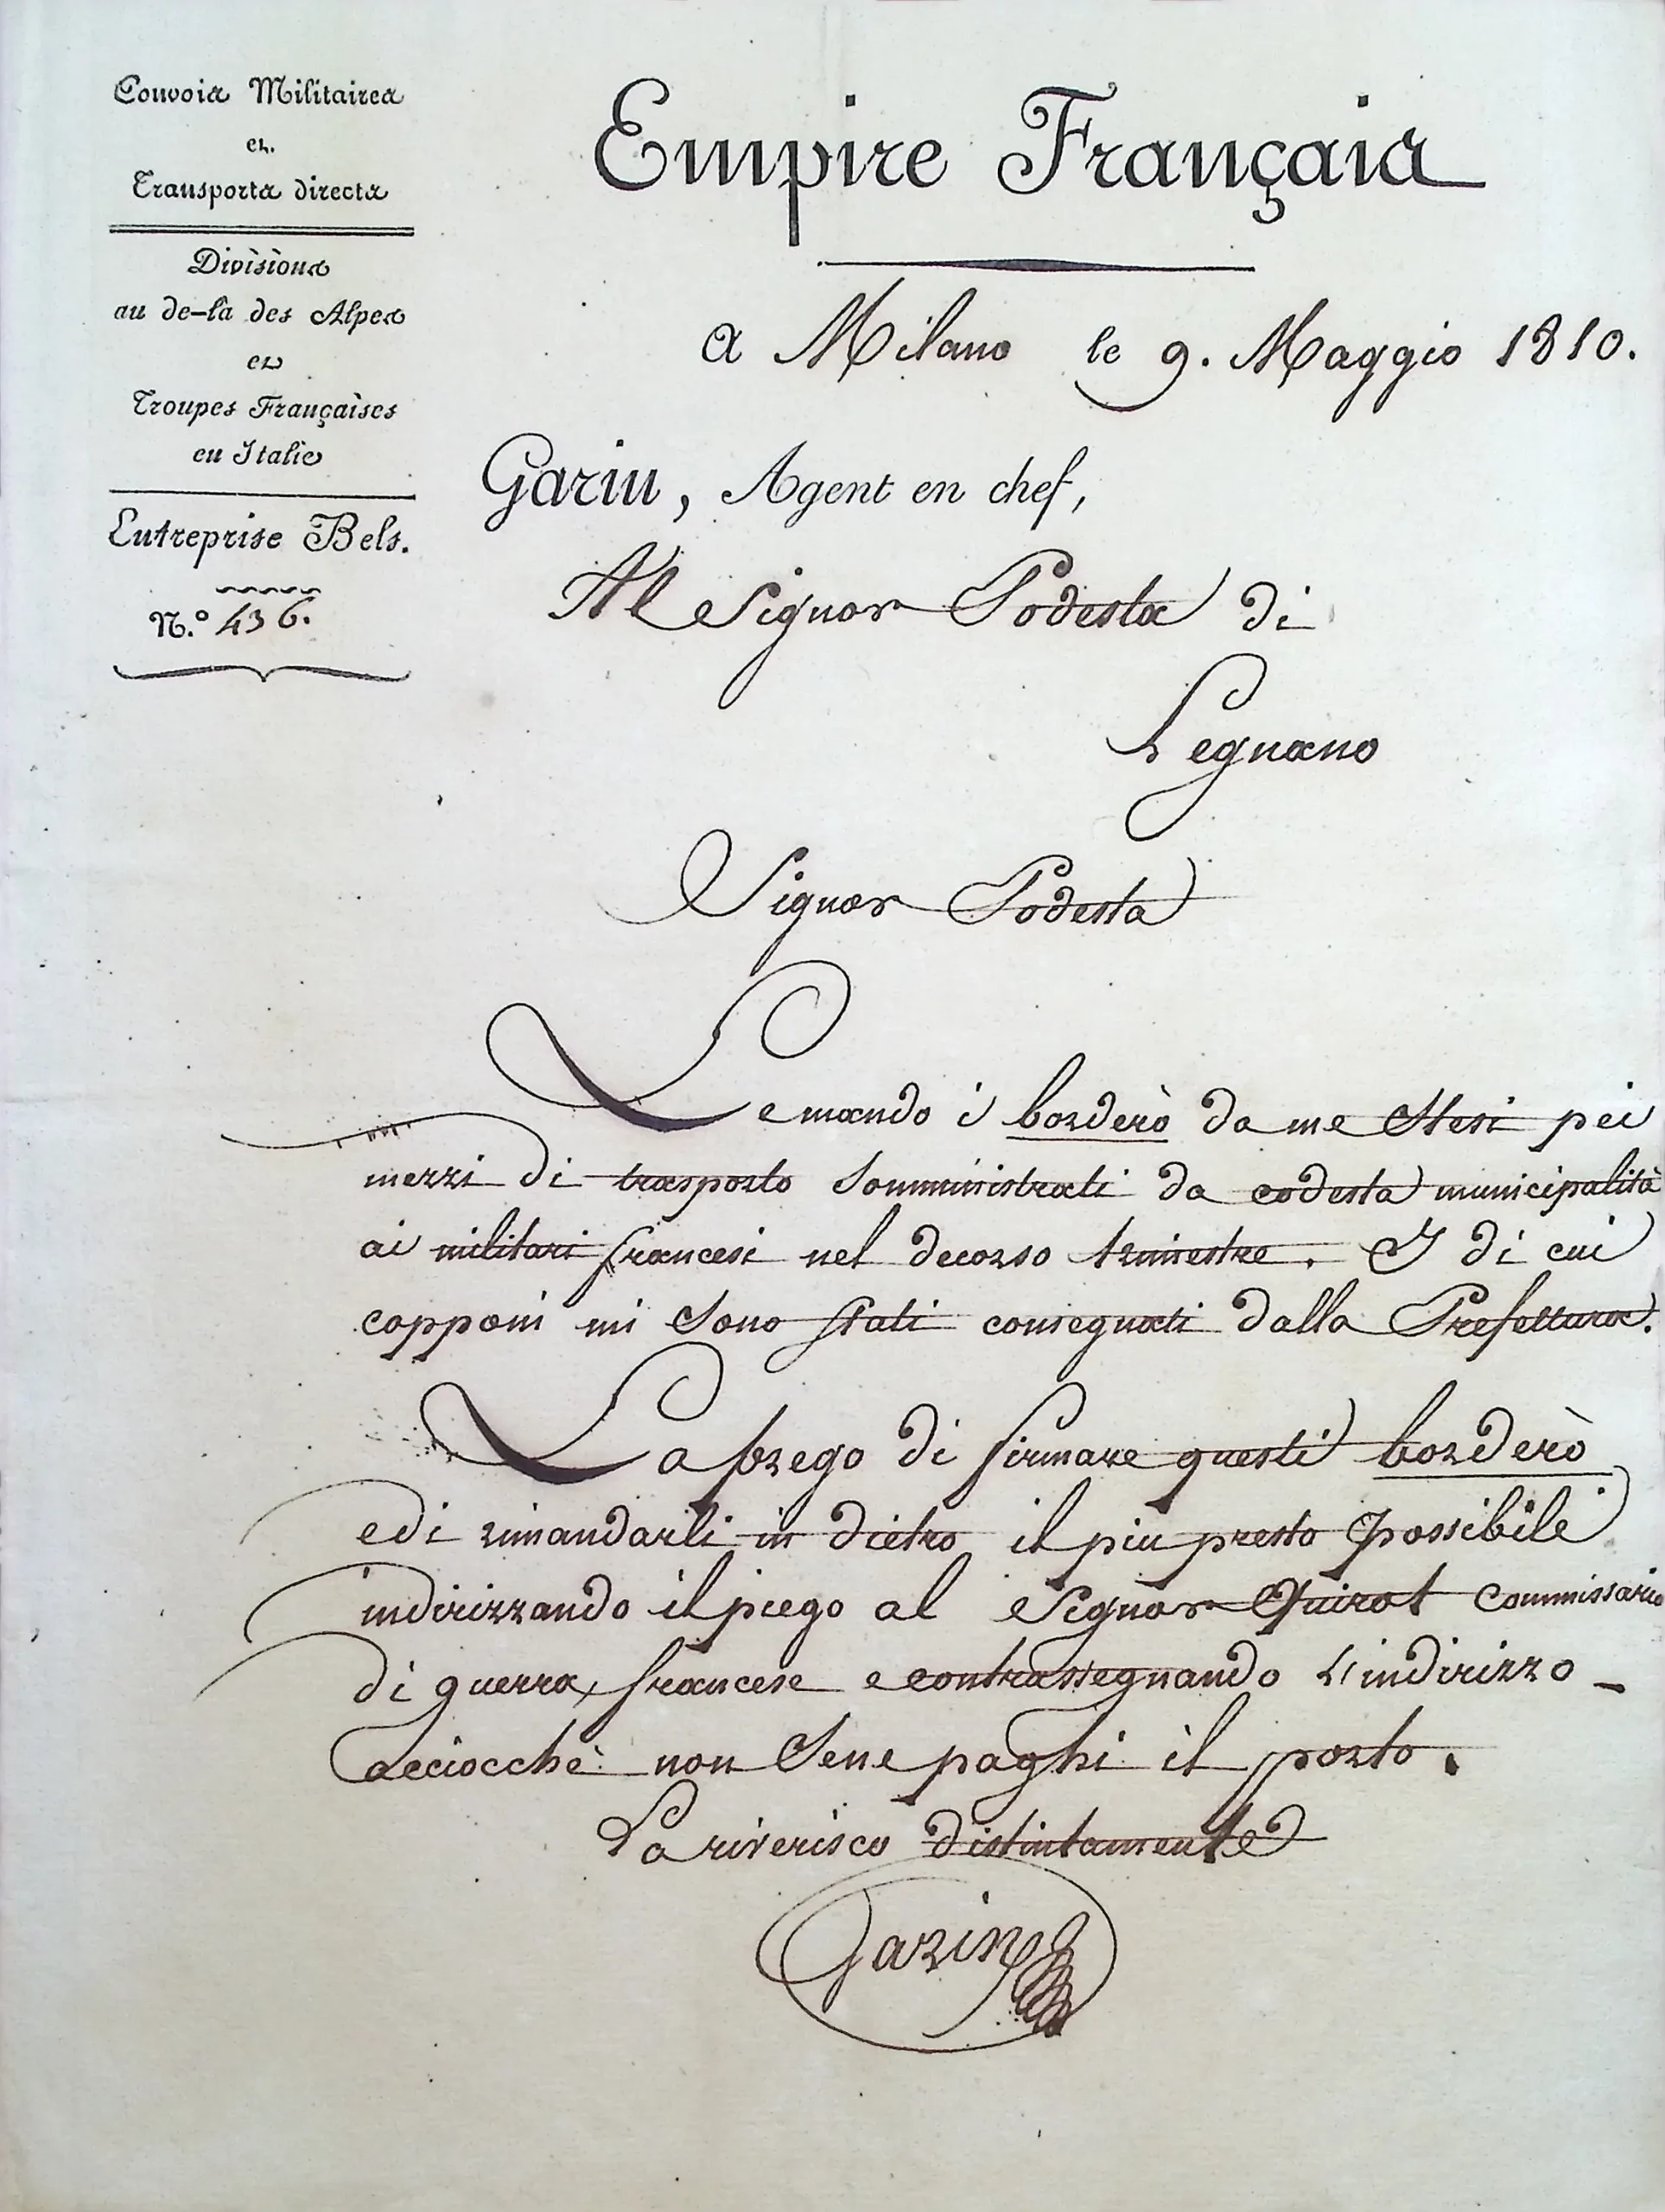 Convois Militaires
et
Transports directs
Divisions
au de-là des Alpes
et
Troupes Françaises
en Italie
Entreprise Bels.
N.º 436.
Empire Français
a Milano le 9. Maggio 1810.
Garin, Agent en chef,
Al Signor Podesta di
Legnano
Signor Podesta
Le mando i borderò da me Stesi pei
mezzi di trasporto Somministrati da codesta municipalità
ai militari francesi nel decorso trimestre. I di cui
copponi mi Sono Stati consegnati dalla Prefettura.
La prego di firmare questi borderò
e di rimandarli in dietro il piu presto possibile
indirizzando il piego al Signor Quirot Commissario
di guerra francese e contrassegnando l'indirizzo
acciocchè non Sene paghi il porto.
La riverisco distintamente
Garin